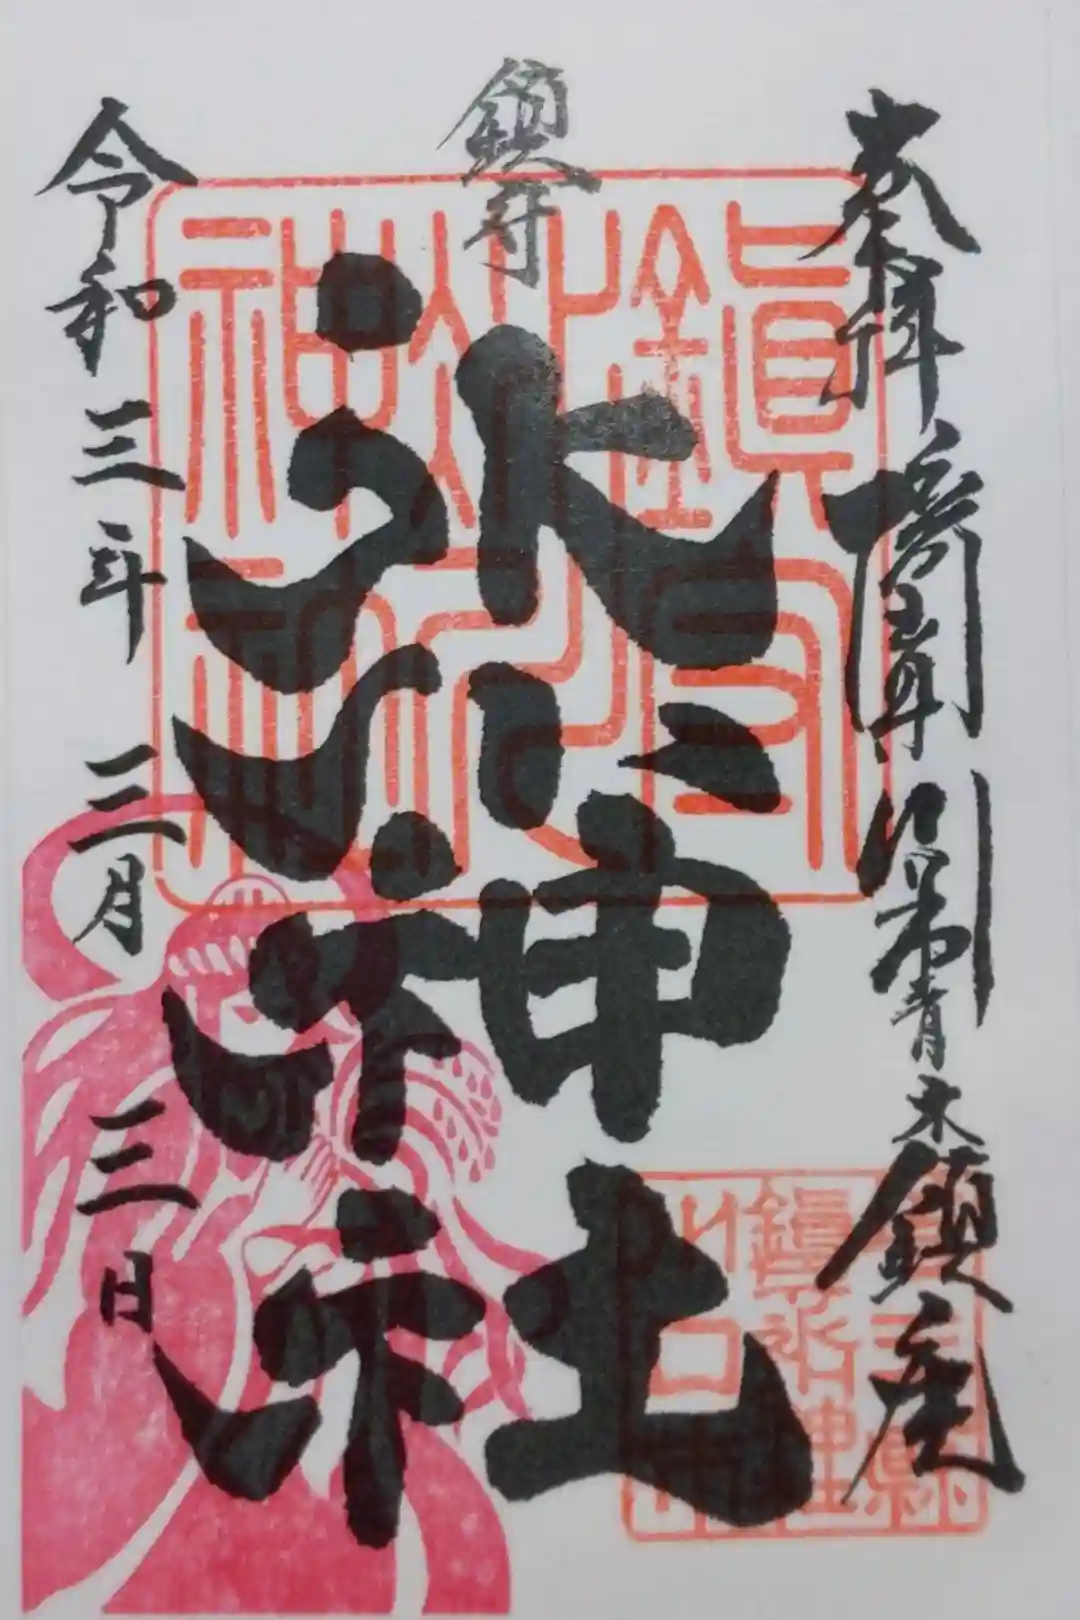 奉拝
青木鎮座
鎮守
氷川神社
令和三年三月三日
鎮守氷川神社